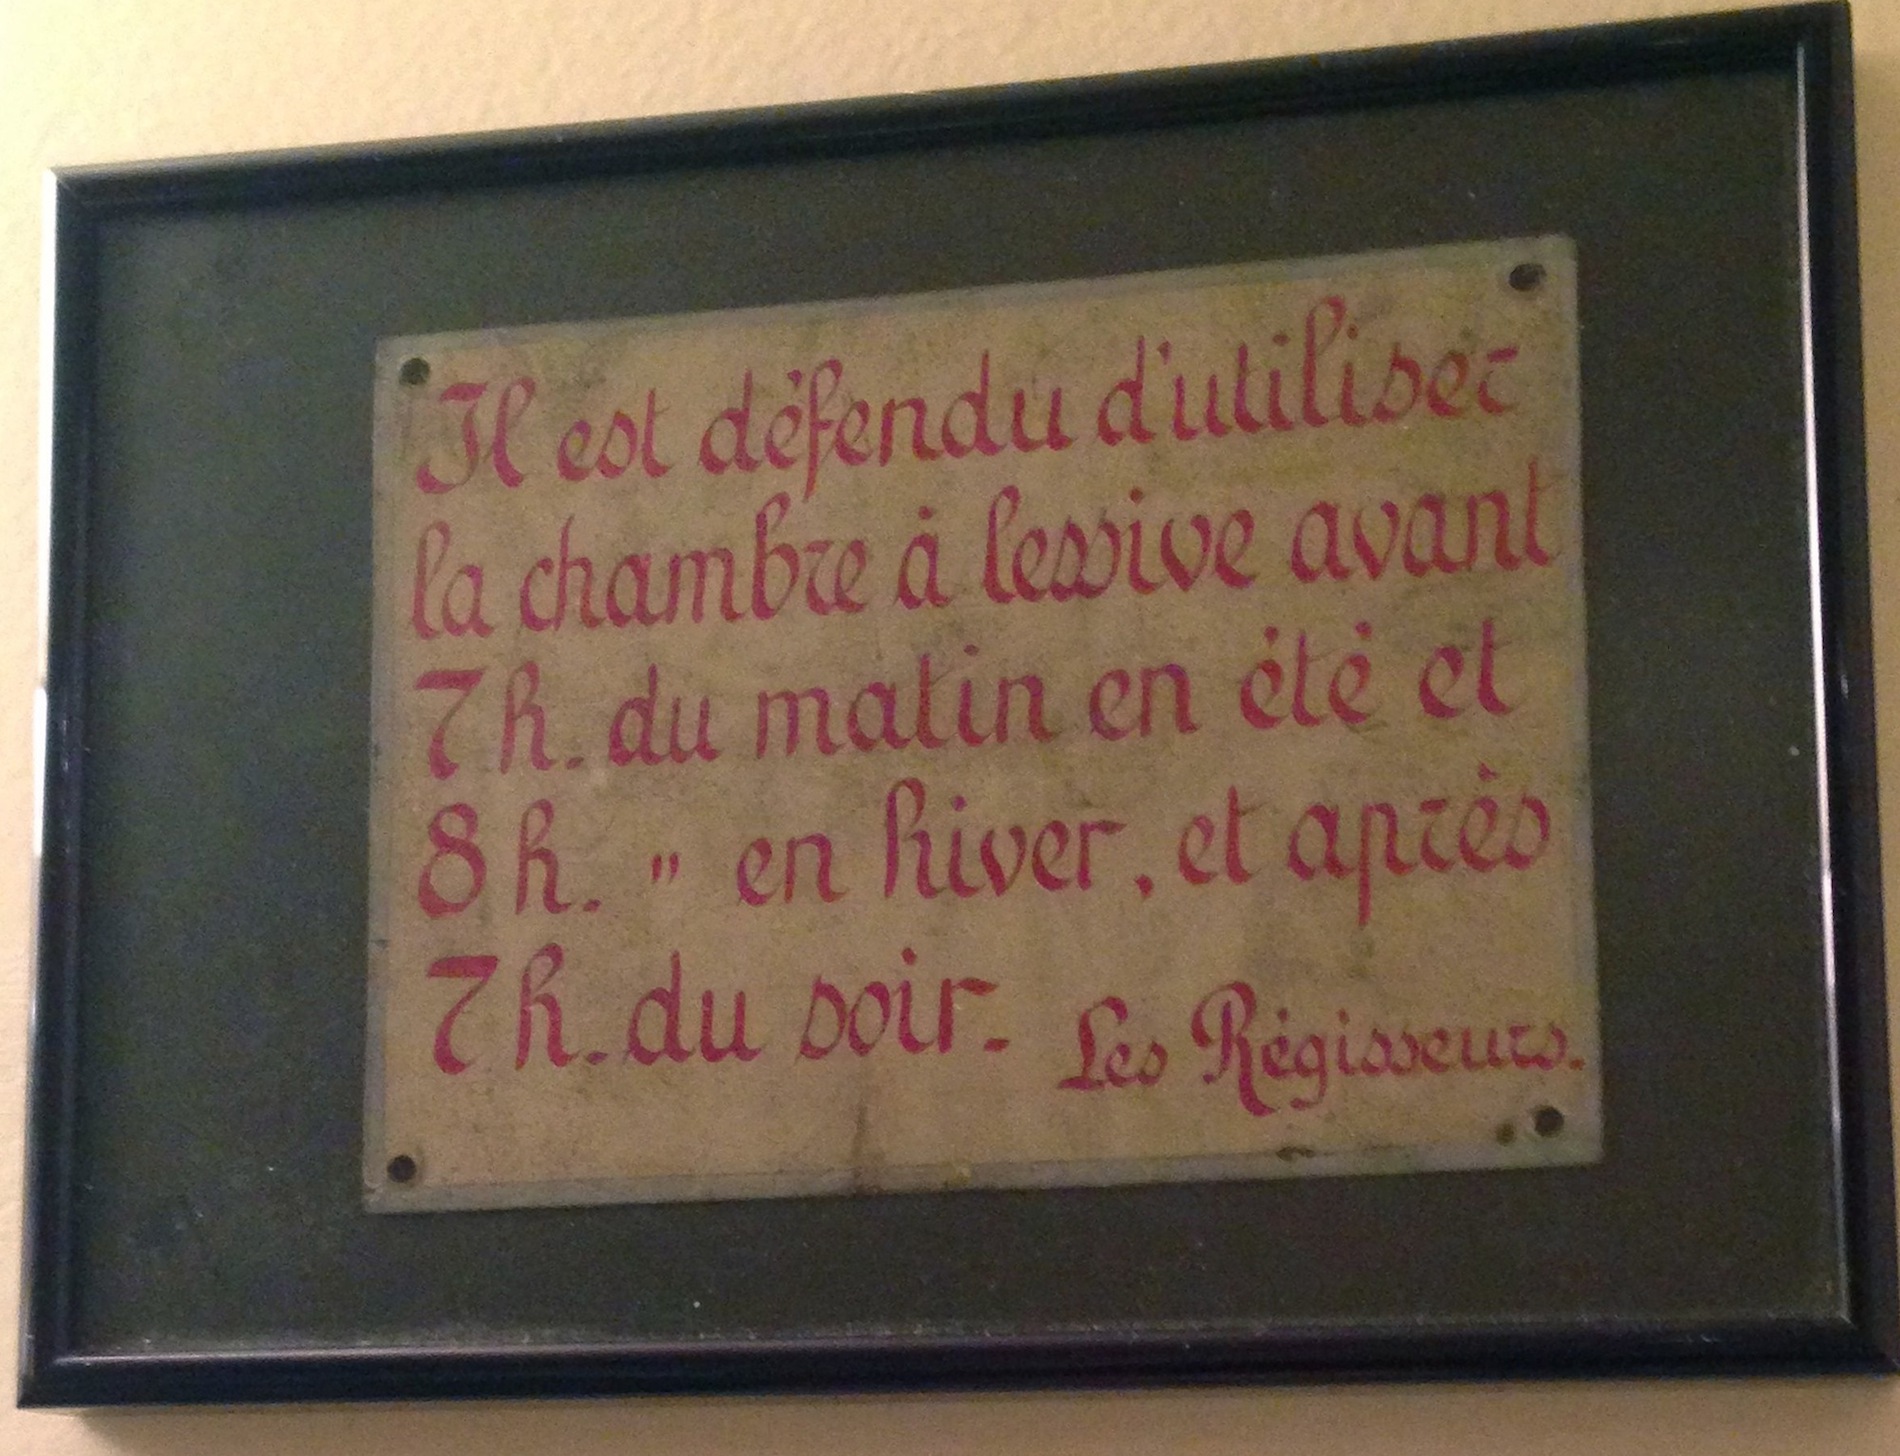 Il est défendu d'utiliser
la chambre à lessive avant
7 h. du matin en été et
8 h. " en hiver, et après
7 h. du soir.
Les Régisseurs.